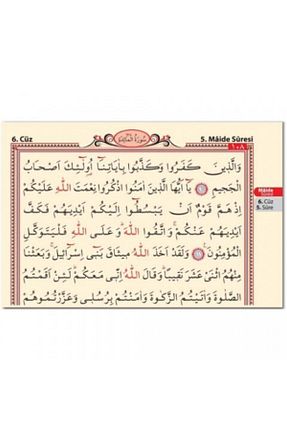 6. Cüz
5. Mâide Sûresi
١٠٨
وَالَّذ۪ينَ كَفَرُوا وَكَذَّبُوا بِاٰيَاتِنَٓا اُو۬لٰٓئِكَ اَصْحَابُ
الْجَح۪يمِ يَٓا اَيُّهَا الَّذ۪ينَ اٰمَنُوا اذْكُرُوا نِعْمَتَ اللّٰهِ عَلَيْكُمْ
اِذْ هَمَّ قَوْمٌ اَنْ يَبْسُطُٓوا اِلَيْكُمْ اَيْدِيَهُمْ فَكَفَّ
اَيْدِيَهُمْ عَنْكُمْ وَاتَّقُوا اللّٰهَ وَعَلَى اللّٰهِ فَلْيَتَوَكَّلِ
الْمُؤْمِنُونَ وَلَقَدْ اَخَذَ اللّٰهُ م۪يثَاقَ بَن۪ٓي اِسْرَٓائ۪لَ وَبَعَثْنَا
مِنْهُمُ اثْنَيْ عَشَرَ نَق۪يبًا وَقَالَ اللّٰهُ اِنّ۪ي مَعَكُمْ لَئِنْ اَقَمْتُمُ
الصَّلٰوةَ وَاٰتَيْتُمُ الزَّكٰوةَ وَاٰمَنْتُمْ بِرُسُل۪ي وَعَزَّرْتُمُوهُمْ
Mâide
6. Cüz
5. Sûre